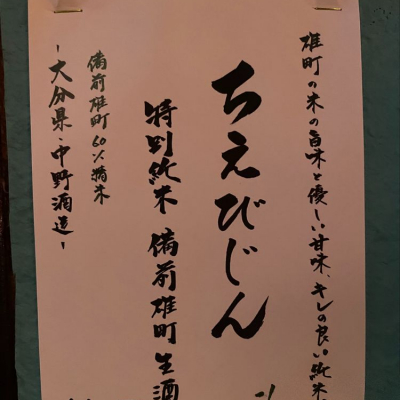 雄町の米の旨味と優しい甘味、キレの良い純米
ちえびじん
特別純米 備前雄町 生酒
備前雄町60%精米
-大分県・中野酒造-